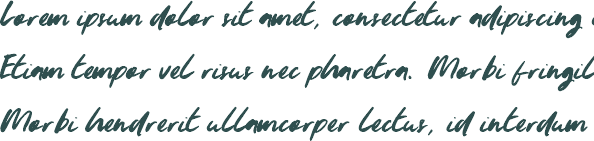 Lorem ipsum dolor sit amet, consectetur adipiscing
Etiam tempor vel risus nec pharetra. Morbi fringil
Morbi hendrerit ullamcorper lectus, id interdum